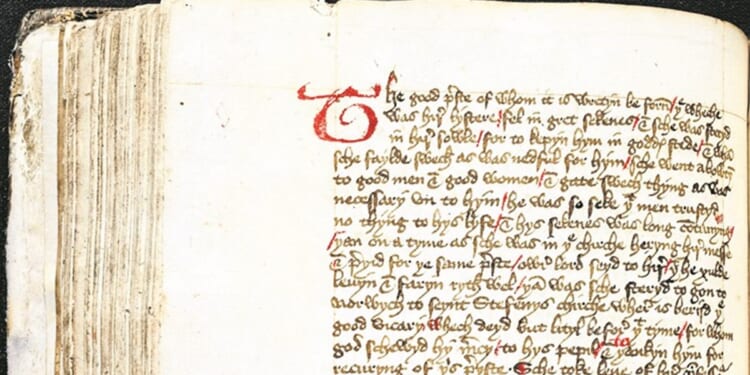 The good pͬste of whom it is wretyn be forn / yͤ wheche
was hir̛ lystere / fel in gret sekenes / & sche was steryd
in hir̛ sowle / for to kepyn hym in goddys stede / & whan
sche faylde swech as was nedful for hym / sche went abowtyn
to good men & good women / & gate swech thyng as was
necessary vn to hym / he was so seke yͭ men trustyd
no thyng to hys lyfe / & hys sekenes was long contunyng /
/ yan on a tyme as sche was in yͤ chirche heryng hir̛ messe
& preyd for ye same pͬste / owr̛ lord seyd to hir̛ / yͭ he xulde
leuyn & faryn ryth wel / yan was sche steryd to gon to
norwych to seynt Stefenys chirche wher̛ is beriid yͤ
good vicary / whech deyd but lityl be for̛ yͭ tyme / for whom
god schewyd hy mͨcy to hys pepil / & yankyn hym for
recuryng of yis pͬste . Sche toke leue of hir